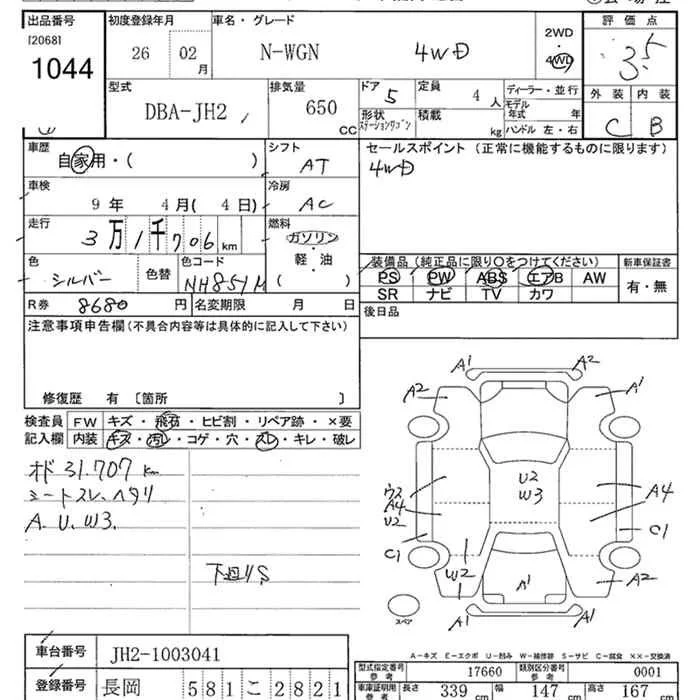 出品番号 初度登録年月 車名・グレード 2WD 評価点
[2068] 26 02月 N-WGN 4WD 4WD 3.5
1044
型式 排気量 ドア 5 定員 4人 ディーラー・並行 外装 内装
DBA-JH2 650 CC 形状 ステーションワゴン 積載 kg モデル年式 年 C B
ハンドル 左・右
車歴 シフト セールスポイント(正常に機能するものに限ります)
自家用・( ) AT 4WD
車検 冷房
9年 4月(4日) AC
走行 燃料
3万1千706km ガソリン
軽・油
( )
色 色替 色コード 装備品(純正品に限り○をつけてください) 新車保証書
シルバー NH851M PS PW ABS エアB AW 有・無
SR ナビ TV カワ
R券 8680円 名変期限 月 日 後日品
注意事項申告欄(不具合内容等は具体的に記入して下さい)
修復歴 有〔箇所 〕
検査員 FW キズ・飛石・ヒビ割・リペア跡・×要
記入欄 内装 キズ・汚れ・コゲ・穴・スレ・キレ・破レ
オド 31.707km
シートスレ、ヘタリ
A.U.W3.
下廻りS
A1 A2
A2 A1
U2
W3
ウス
A4
U2
A4
C1
C1
W2
A1
A2
A1 A1
スペア
A-キズ E-エクボ U-凹み W-補修跡 S-サビ C-腐食 XX-交換済
車台番号 JH2-1003041
型式指定番号 参考 17660 類別区分番号 参考 0001
登録番号 長岡 581 こ 2821
車庫証明用 参考 長さ 339cm 幅 147cm 高さ 167cm